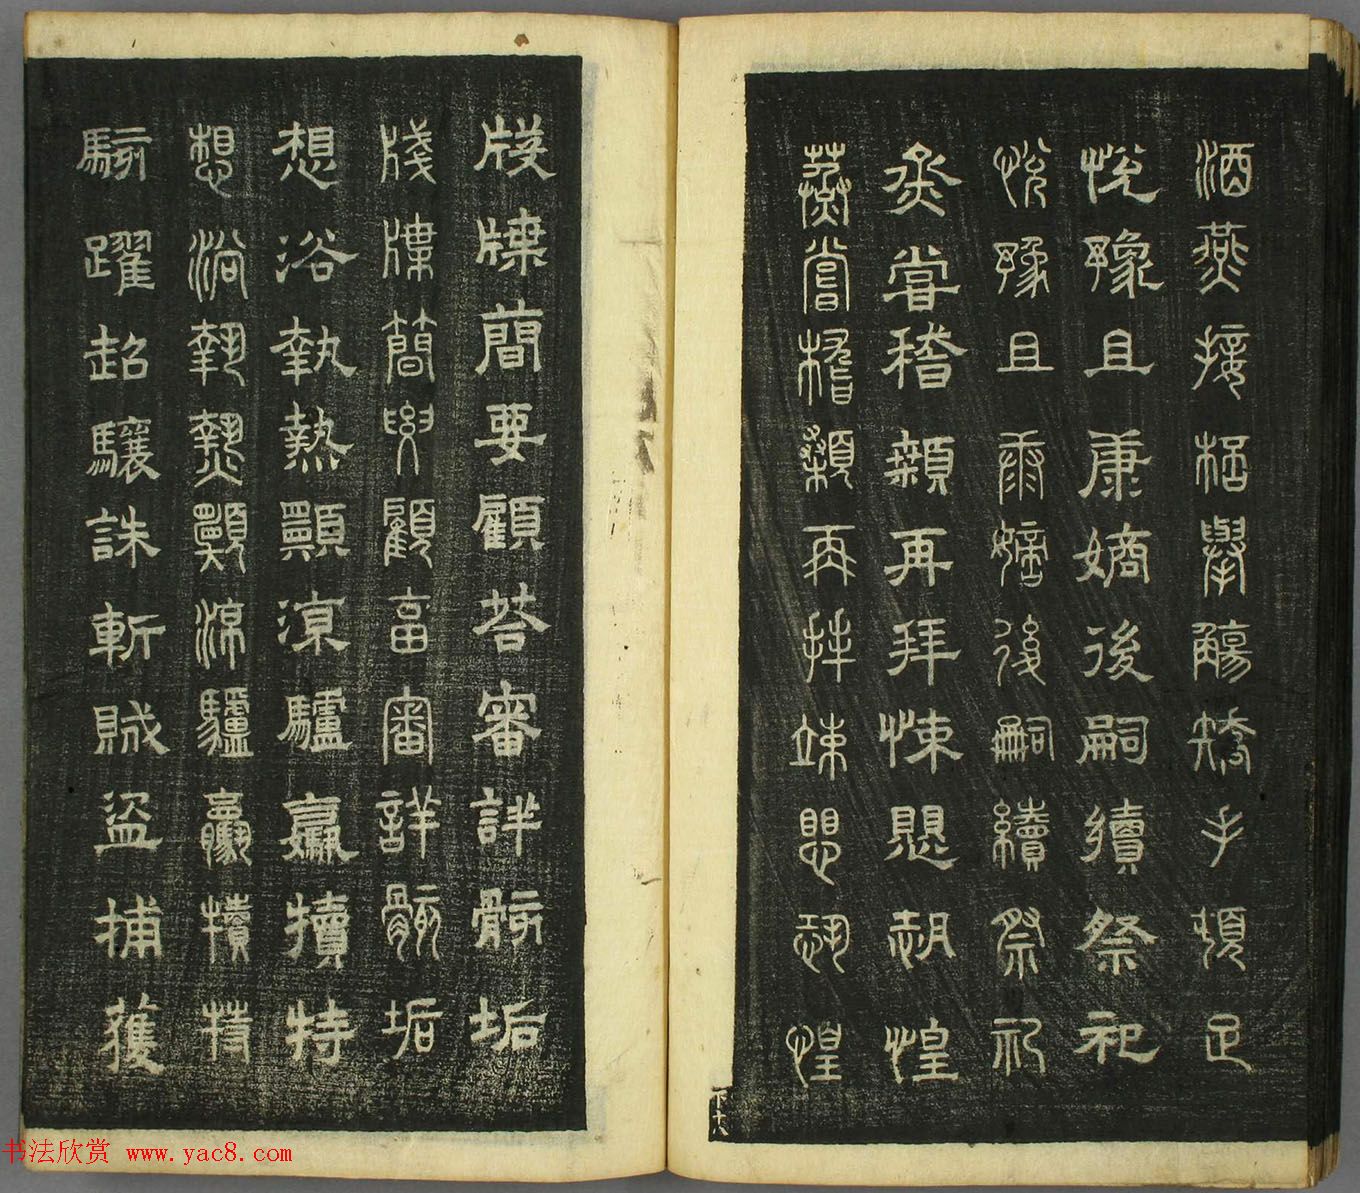 酒燕接桮舉觴矯手頓足
悅豫且康嫡後嗣續祭祀
悅豫且康嫡後嗣續祭祀
烝嘗稽顙再拜悚懼恐惶
蒸嘗稽顙再拜竦懼恐惶
牋牒簡要顧荅審詳骸垢
牋牒簡要顧畣審詳骸垢
想浴執熱願涼驢騾犢特
想浴執熱願涼驢騾犢特
駭躍超驤誅斬賊盜捕獲
下十八
书法欣赏 www.yac8.com